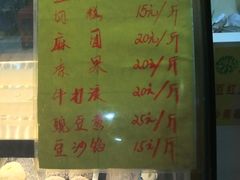 15元/斤
麻圆 20元/斤
麻果 20元/斤
牛打滚 20元/斤
豌豆 25元/斤
豆沙馅 15元/斤